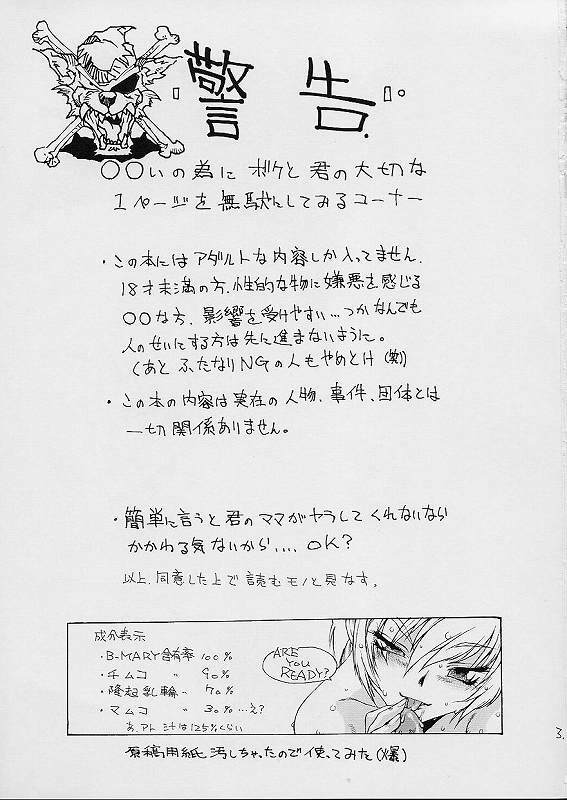 警告.
○○いの為にボケと君の大切な
1ページを無駄にしてみるコーナー
・この本にはアダルトな内容しか入ってません.
18才未満の方.性的な物に嫌悪を感じる
○○な方.影響を受けやすい…つかなんでも
人のせいにする方は先に進まないように。
(あと ふたなりNGの人もやめとけ(笑)
・この本の内容は実在の人物、事件、団体とは
一切関係ありません。
・簡単に言うと君のママがヤラしてくれないなら
かかわる気ないから.... OK?
以上.同意した上で読むモノと見なす。
成分表示
・B-MARY含有率 100%
・チムコ 〃 90%
・隆起乳輪 〃 70%
・マムコ 〃 30%…え?
あ.アト 汁は125%くらい
ARE YOU READY?
原稿用紙汚しちゃったので使ってみた(爆)
3.